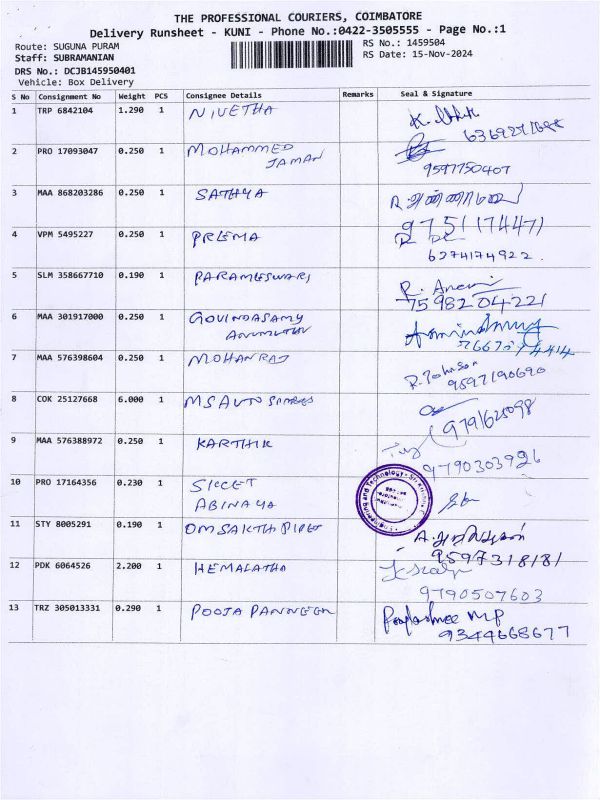 THE PROFESSIONAL COURIERS, COIMBATORE
Delivery Runsheet - KUNI - Phone No.:0422-3505555 - Page No.:1
Route: SUGUNA PURAM
RS No.: 1459504
Staff: SUBRAMANIAN
RS Date: 15-Nov-2024
DRS No.: DCJB145950401
Vehicle: Box Delivery
S No Consignment No Weight PCS Consignee Details Remarks Seal & Signature
1 TRP 6842104 1.290 1 NIVETHA
2 PRO 17093047 0.250 1 MOHAMMED
JAMAN
9597750407
3 MAA 868203286 0.250 1 SATHYA R.
9751174471
4 VPM 5495227 0.250 1 PREMA
6274174922.
5 SLM 358667710 0.190 1 PARAMESWARI R.
7598204221
6 MAA 301917000 0.250 1 GOVINDASAMY
7 MAA 576398604 0.250 1 MOHANRAJ R. Johnson
9597190690
8 COK 25127668 6.000 1 MS AUTO
9791625098
9 MAA 576388972 0.250 1 KARTHIK
9790303926
10 PRO 17164356 0.230 1 SKCET
ABINAYA
Engineering and Technology
11 STY 8005291 0.190 1 OM SAKTHI A.
9597318181
12 PDK 6064526 2.200 1 HEMALATHA
9790507603
13 TRZ 305013331 0.290 1 POOJA
9344668677